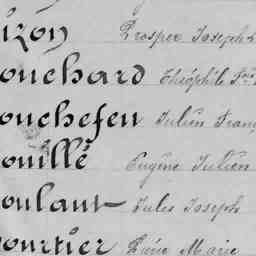 izon Prosper Joseph
ouchard Théophile Fr
ouchefeu Julien Franç
ouillé Eugène Julien
oulant Jules Joseph
ourtier Pierre Marie